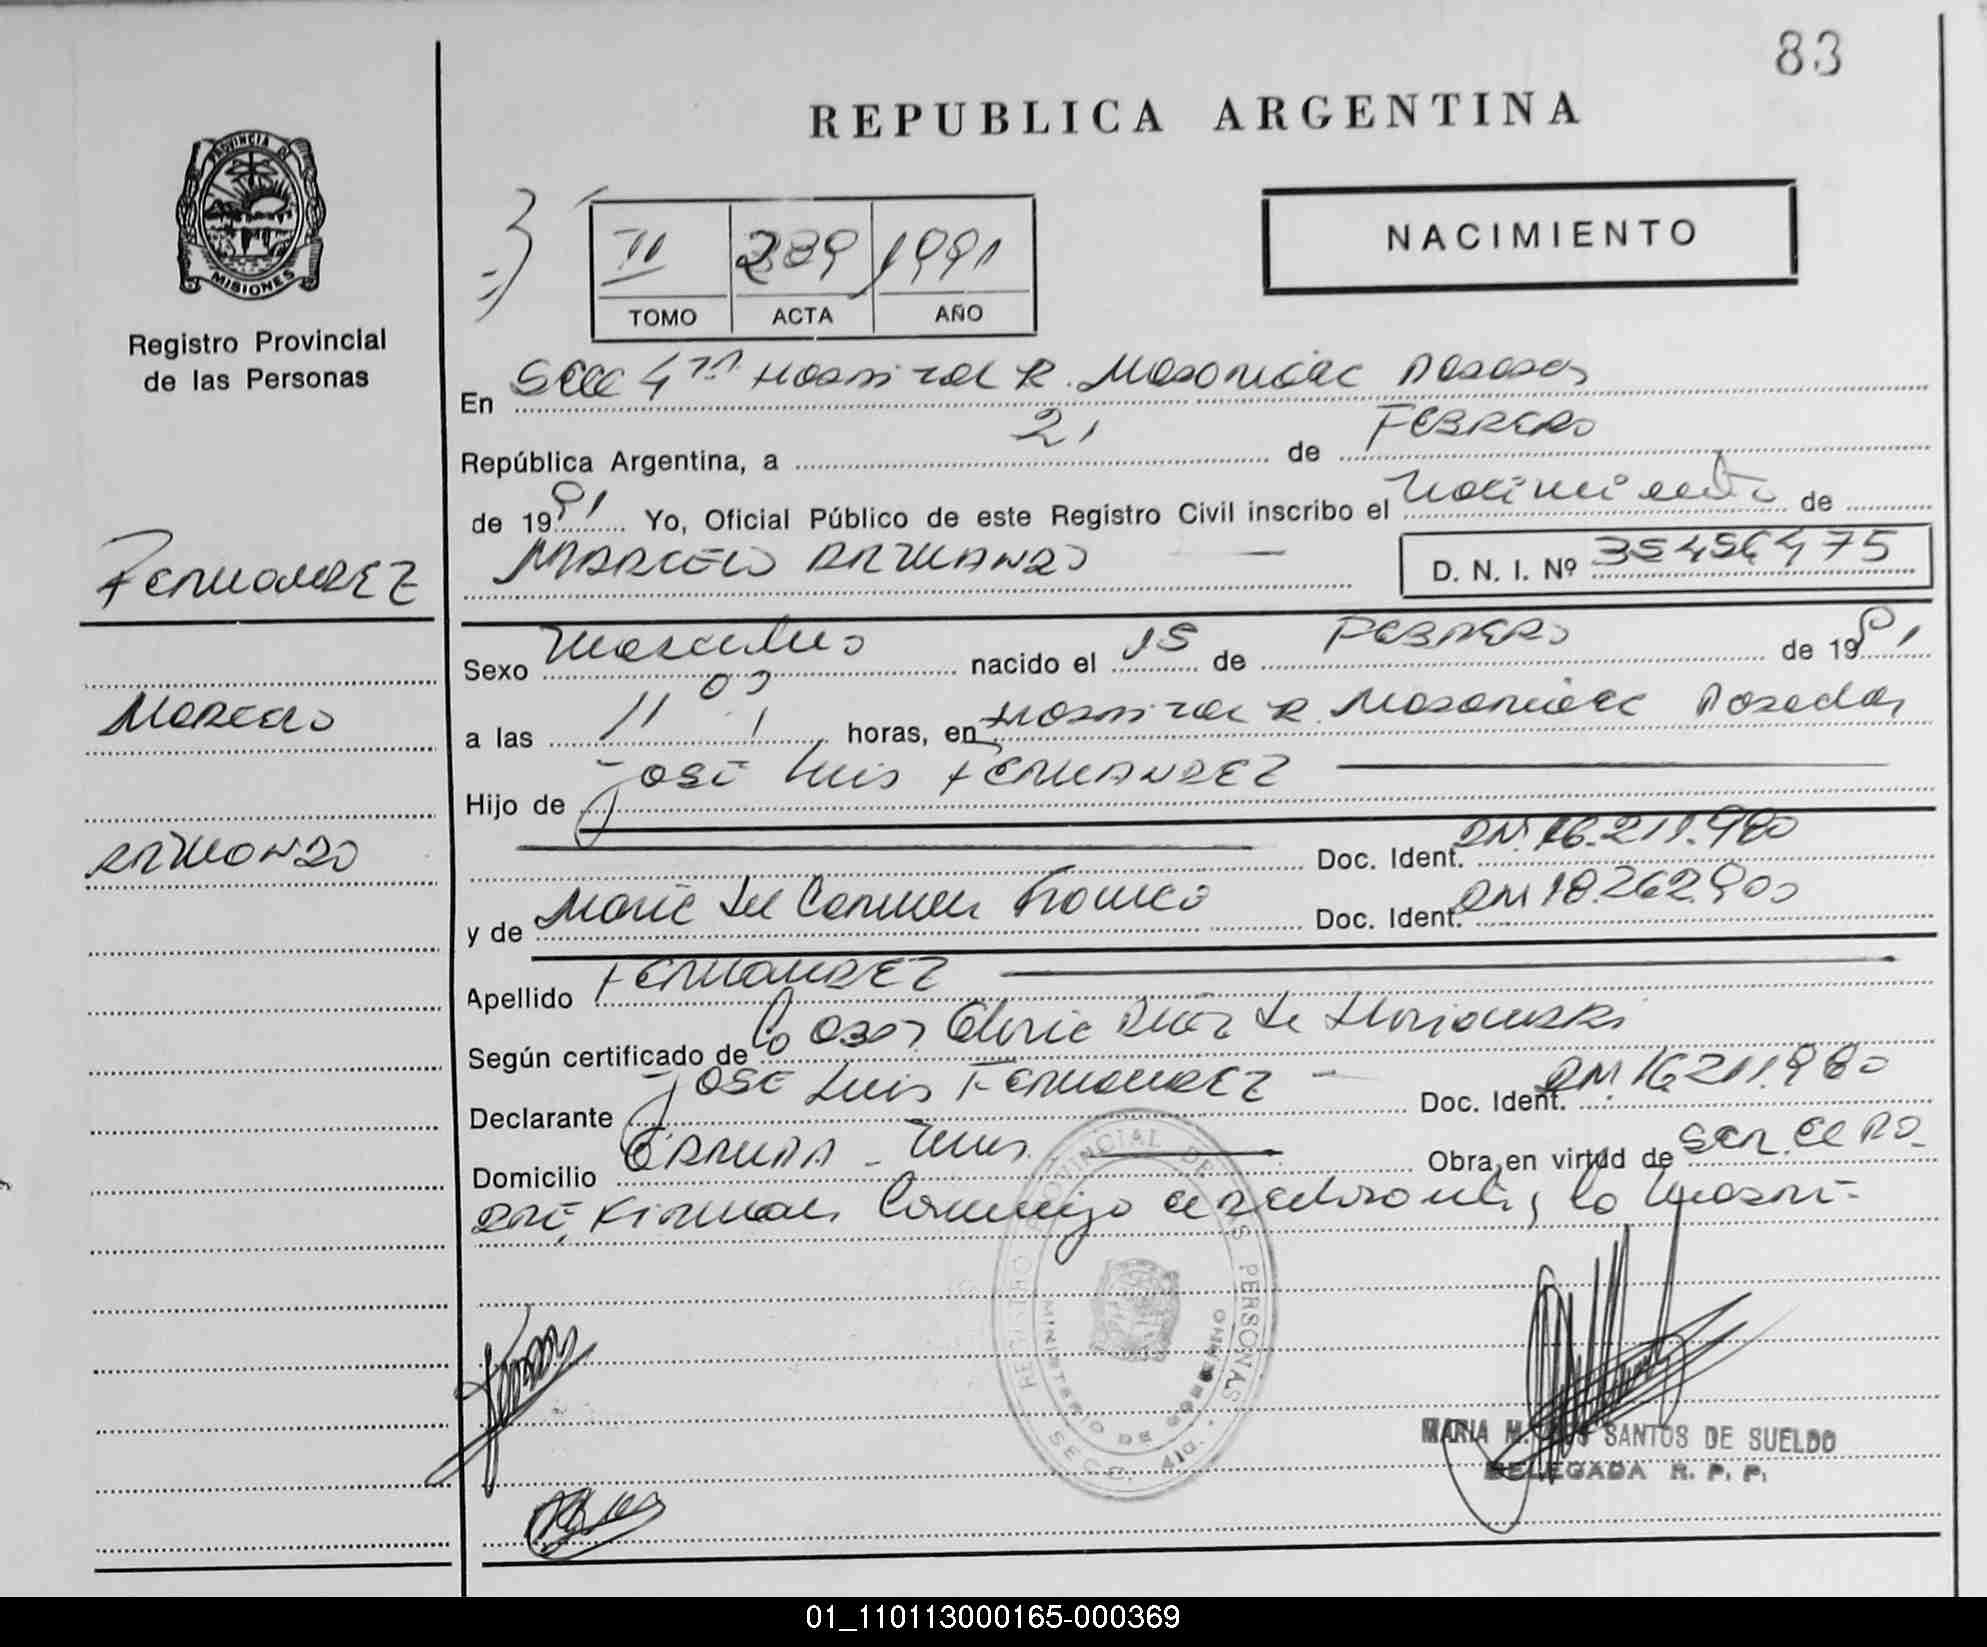 83
REPUBLICA ARGENTINA
PROVINCIA DE
MISIONES
Registro Provincial
de las Personas
II 289 1991
TOMO ACTA AÑO
NACIMIENTO
En Secc 4ta Hospital R. Madariaga Posadas
República Argentina, a 21 de FEBRERO
de 1991 Yo, Oficial Público de este Registro Civil inscribo el Nacimiento de
MARCELO ARMANDO D. N. I. Nº 35456475
FERNANDEZ
MARCELO
ARMANDO
Sexo Masculino nacido el 15 de FEBRERO de 1991
a las 11 00 horas, en Hospital R. Madariaga Posadas
Hijo de JOSE Luis FERNANDEZ
Doc. Ident. DNI 16.211.980
y de Maria del Carmen Franco Doc. Ident. DNI 18.262.900
Apellido FERNANDEZ
Según certificado de la Obst Gloria de
Declarante JOSE Luis FERNANDEZ Doc. Ident. DNI 16.211.980
Domicilio Obra en virtud de ser el PA-
DRE, Firman Conmigo el declarante y la Madre-
REGISTRO PROVINCIAL DE LAS PERSONAS
MINISTERIO DE GOBIERNO
SECC. 4ta.
MARIA M. SANTOS DE SUELDO
DELEGADA R. P. P.
01_110113000165-000369